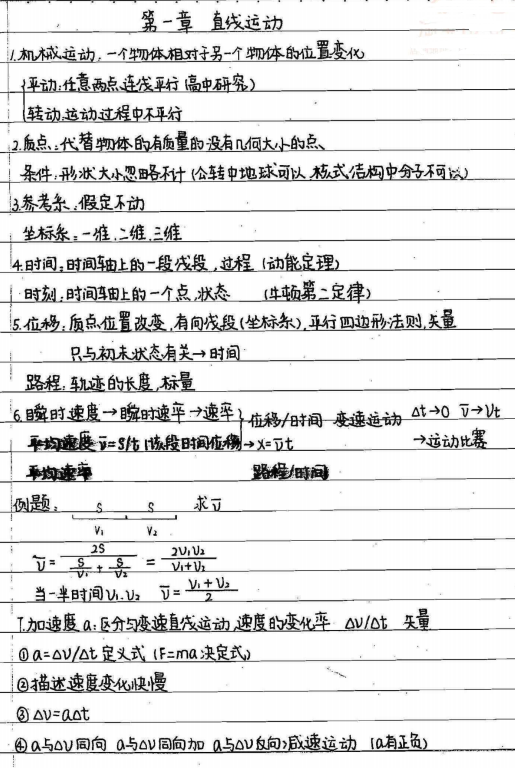 第一章 直线运动
1.机械运动:一个物体相对于另一个物体的位置变化
{平动:任意两点连线平行(高中研究)
转动:运动过程中不平行
2.质点:代替物体的有质量的没有几何大小的点、
条件:形状大小忽略不计(公转中地球可以,核式结构中分子不可以)
3.参考系:假定不动
坐标系:一维.二维.三维
4.时间:时间轴上的一段线段,过程(动能定理)
时刻:时间轴上的一个点,状态 (牛顿第二定律)
5.位移:质点位置改变,有向线段(坐标系),平行四边形法则,矢量
只与初末状态有关→时间
路程:轨迹的长度,标量
6.瞬时速度→瞬时速率→速率}位移/时间 变速运动 Δt→0 v̅→Vt
平均速度 v̅=S/t(该段时间位移→x=v̅t →运动比赛
平均速率 路程/时间
例题: S S 求v̅
V₁ V₂
v̅=2S/(S/V₁+S/V₂)=2V₁V₂/(V₁+V₂)
当一半时间V₁.V₂ v̅=(V₁+V₂)/2
7.加速度a:区分与变速直线运动,速度的变化率 ΔV/Δt 矢量
①a=ΔV/Δt定义式(F=ma决定式)
②描述速度变化快慢
③ΔV=aΔt
④a与ΔV同向 a与ΔV同向加 a与ΔV反向)减速运动 (a有正负)